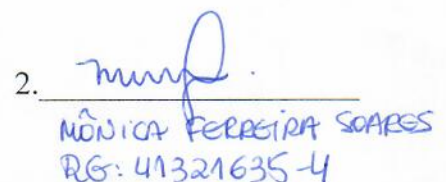 2.
MÔNICA FERREIRA SOARES
RG: 41321635-4